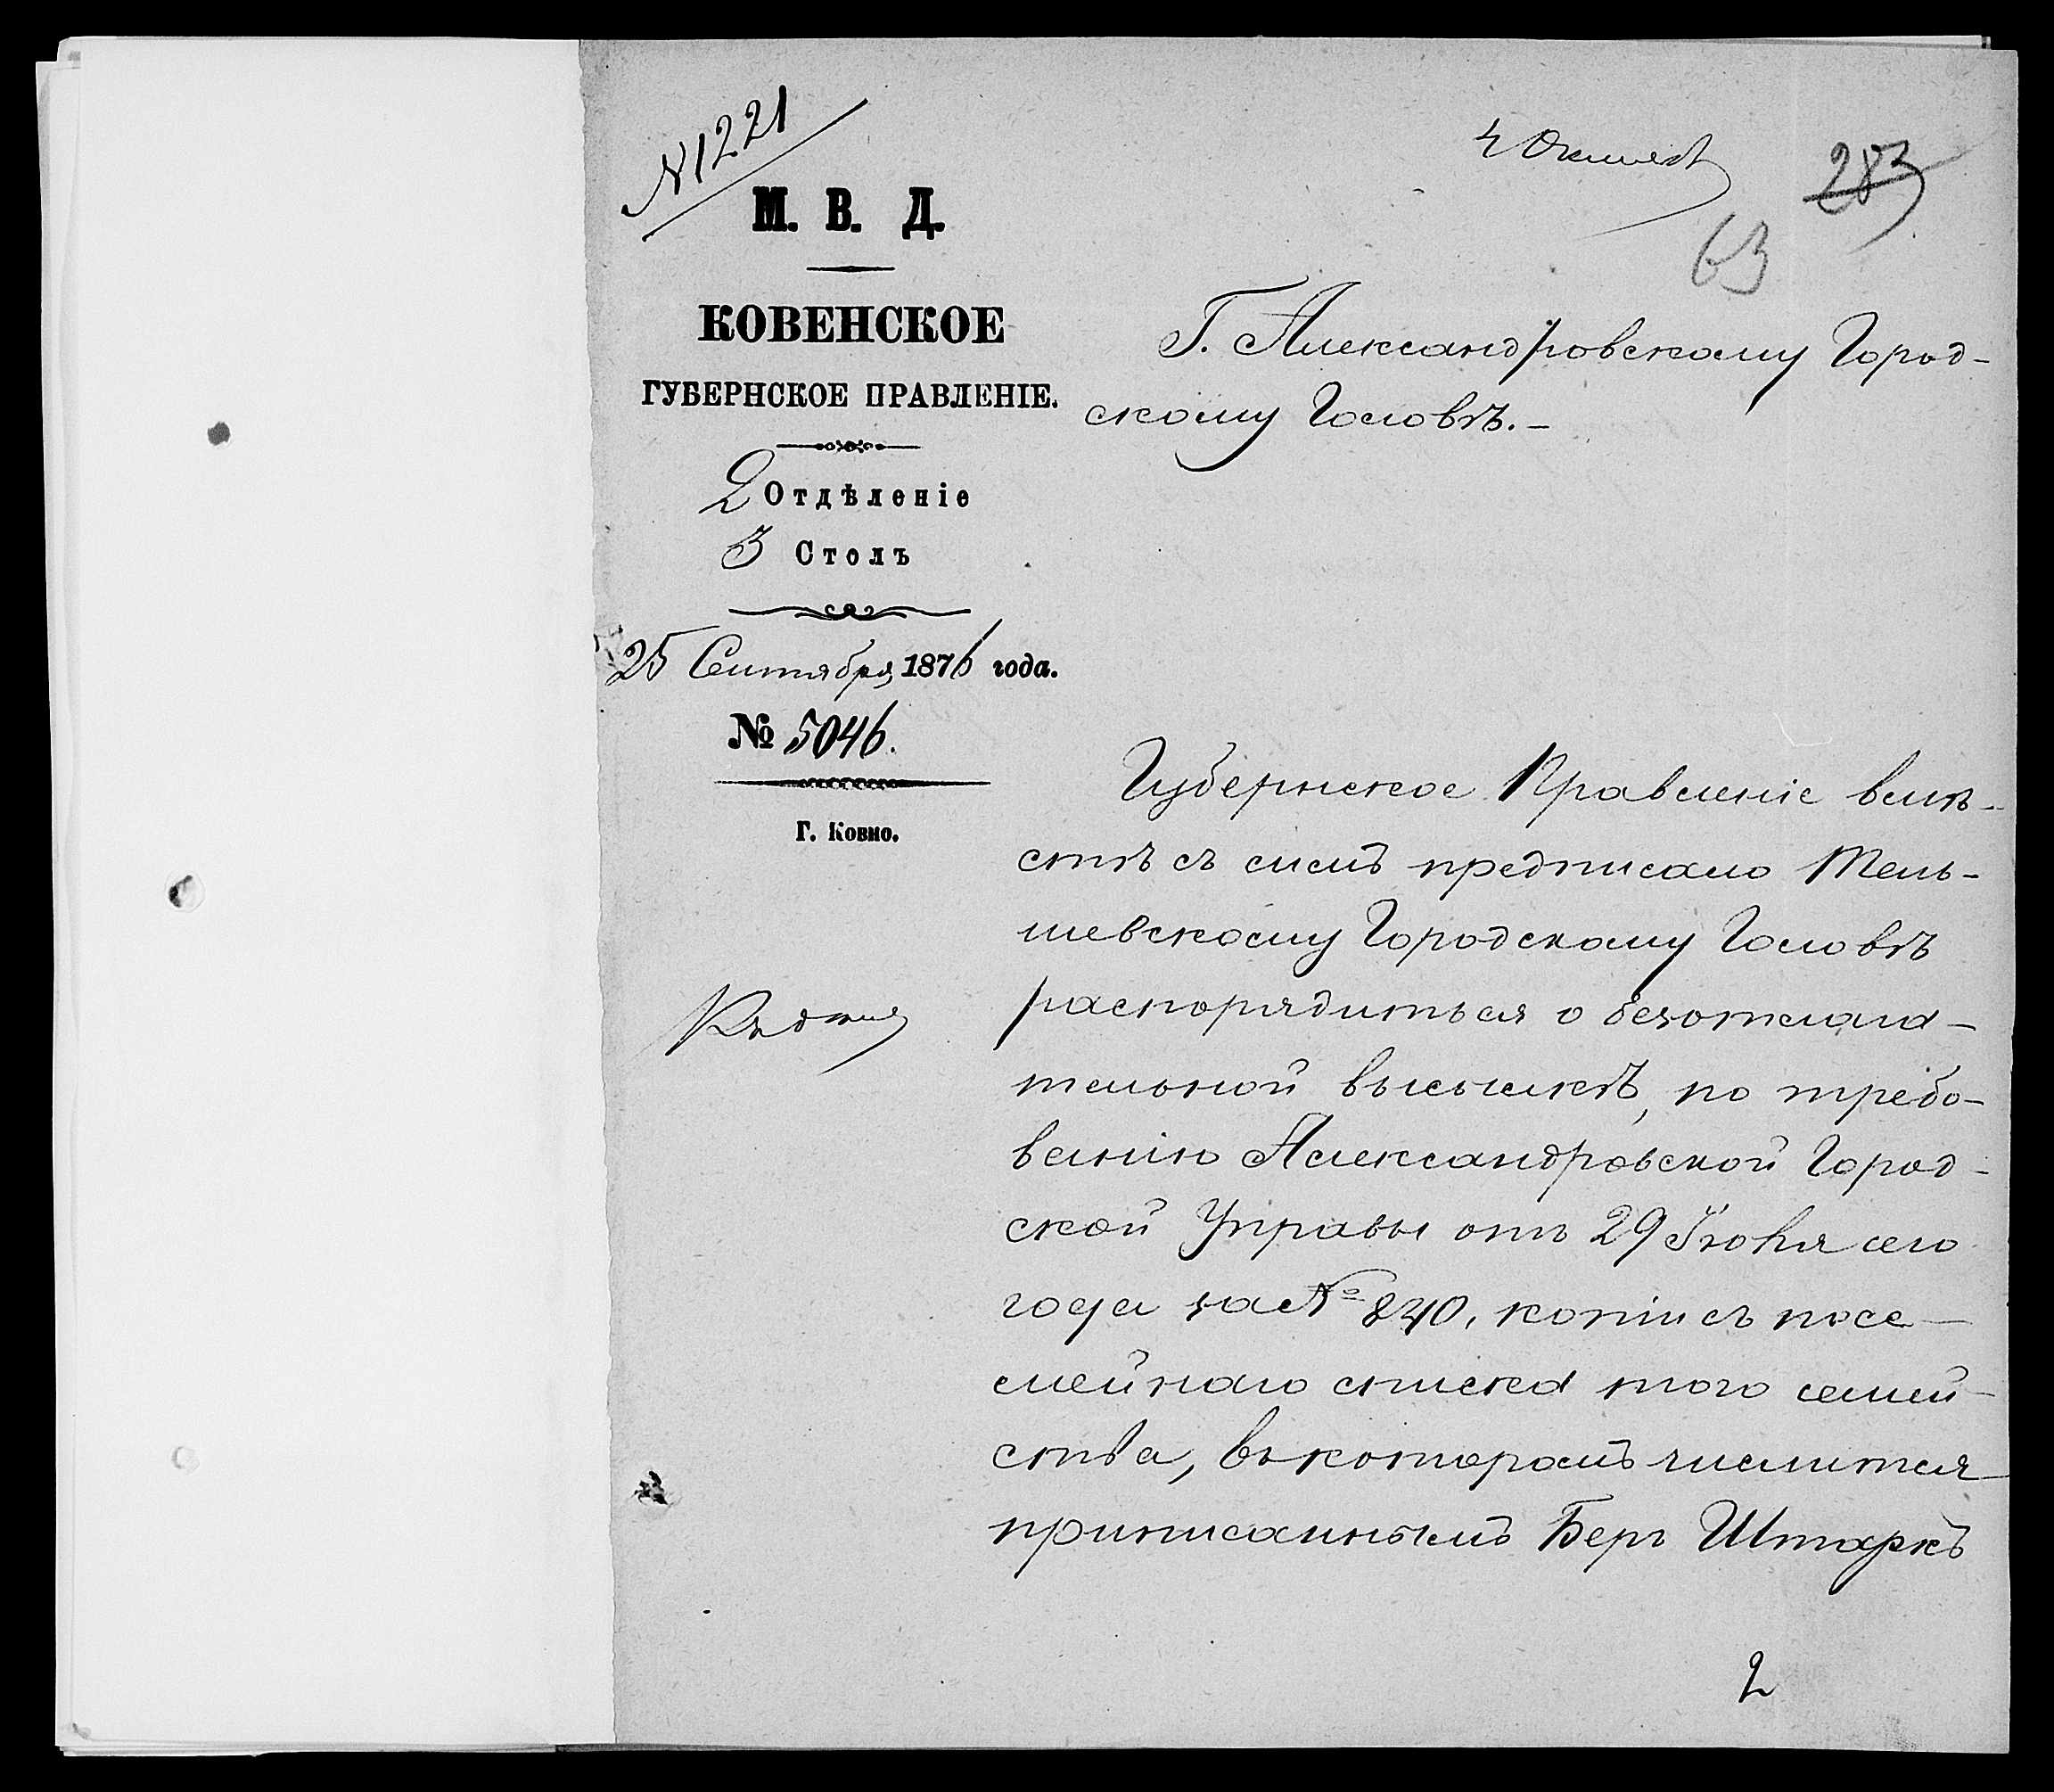 N 1221
283
63
М. В. Д.
КОВЕНСКОЕ
ГУБЕРНСКОЕ ПРАВЛЕНІЕ.
2 Отдѣленіе
3 Столъ
25 Сентября 1876 года.
№ 5046.
Г. Ковно.
Г. Александровскому Город-
скому Головѣ.-
Губернское Правленіе вмѣ-
стѣ съ симъ предписало Тель-
шевскому Городскому Головѣ
распорядиться о безотлага-
тельной высылкѣ, по требо-
ванію Александровской Город-
ской Управы отъ 29 Іюня сего
года за № 840, копіи съ посе-
мейнаго списка того семей-
ства, въ которомъ числится
приписаннымъ Беръ Штаркъ
2